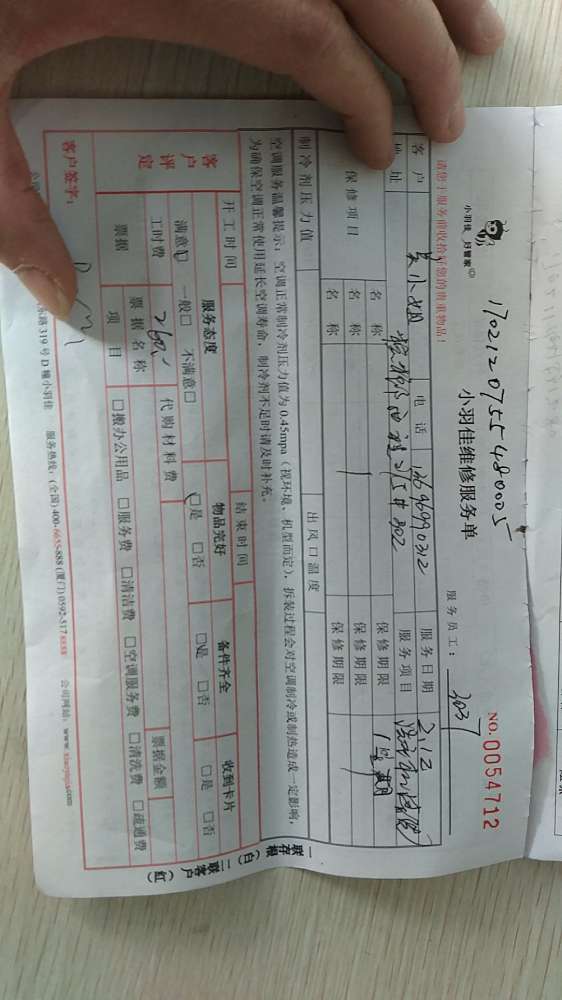 1702120755480005
小羽佳 好管家®
小羽佳维修服务单
NO.0054712
请您于服务前收拾好您的贵重物品！
服务员工： 3037
客户 吴小姐 电话 服务日期 2.12
地址 802 服务项目
保修项目 名称 保修期限
名称 保修期限
名称 保修期限
制冷剂压力值 出风口温度
空调服务温馨提示：空调正常制冷剂压力值为0.45mpa（视环境、机型而定），拆装过程会对空调制冷或制热造成一定影响，
为确保空调正常使用延长空调寿命，制冷剂不足时请及时补充。
开工时间 结束时间
客户评定 服务态度 物品完好 备件齐全 收到卡片
满意□ 一般□ 不满意□ □是 □否 □是 □否 □是 □否
工时费 260 代购材料费
票据 票据名称 票据金额
项目 □搬办公用品 □服务费 □清洁费 □空调服务费 □清洗费 □疏通费
客户签字：
东路319号D幢小羽佳 服务热线：(全国) 400-6655-888 (厦门) 0592-5178888 公司网站：www.xiaoyujia.com
一联存根（白） 二联客户（红）